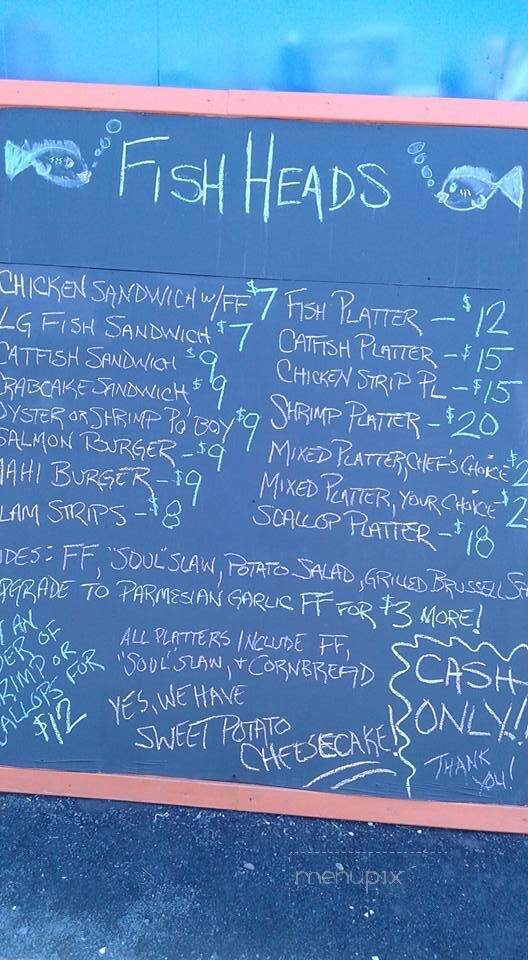 FISH HEADS
CHICKEN SANDWICH W/FF $7
LG FISH SANDWICH $7
CATFISH SANDWICH $9
CRABCAKE SANDWICH $9
OYSTER OR SHRIMP PO'BOY $9
SALMON BURGER - $9
MAHI BURGER - $9
LAM STRIPS - $8
FISH PLATTER - $12
CATFISH PLATTER - $15
CHICKEN STRIP PL - $15
SHRIMP PLATTER - $20
MIXED PLATTER, CHEF'S CHOICE $2
MIXED PLATTER, YOUR CHOICE $2
SCALLOP PLATTER - $18
IDES: FF, "SOUL" SLAW, POTATO SALAD, GRILLED BRUSSEL S
PGRADE TO PARMESIAN GARLIC FF FOR $3 MORE!
AN
DER OF
RIMP OR
ALLOPS FOR
$12
ALL PLATTERS INCLUDE FF,
"SOUL" SLAW, + CORNBREAD
YES, WE HAVE
SWEET POTATO
CHEESECAKE!
CASH
ONLY!!
THANK
YOU!
menupix